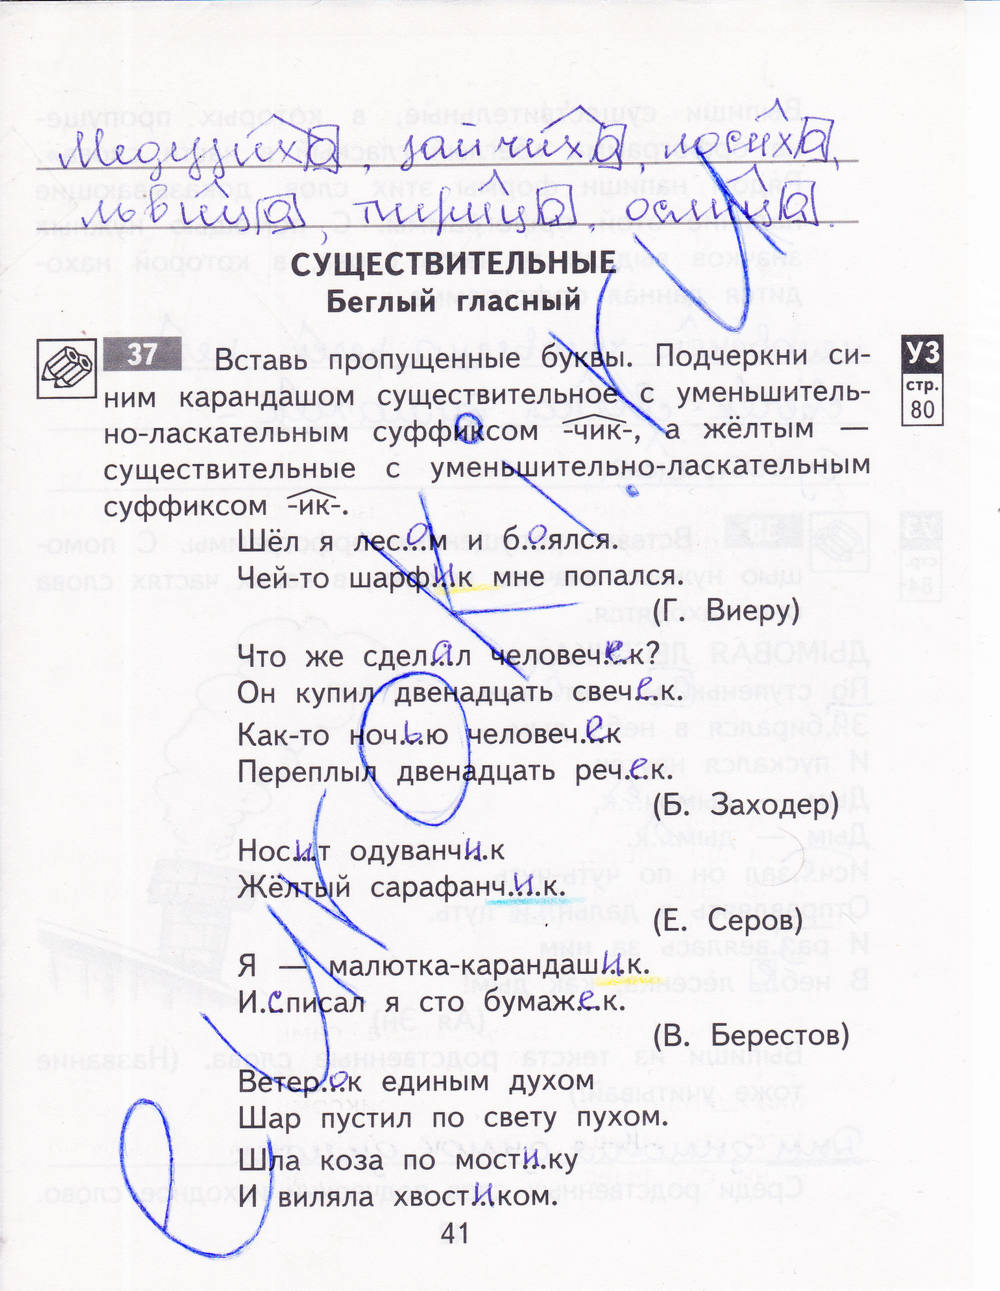 Медузиха, зайчиха, лосиха,
львица, тигрица, ослица.
СУЩЕСТВИТЕЛЬНЫЕ
Беглый гласный
37 Вставь пропущенные буквы. Подчеркни си-
ним карандашом существительное с уменьшитель-
но-ласкательным суффиксом -чик-, а жёлтым —
существительные с уменьшительно-ласкательным
суффиксом -ик-.
УЗ
стр.
80
Шёл я лес..о.м и б..о.ялся.
Чей-то шарф.и.к мне попался.
(Г. Виеру)
Что же сдел.а.л человеч.е.к?
Он купил двенадцать свеч.е.к.
Как-то ноч.ь.ю человеч.е.к
Переплыл двенадцать реч.е.к.
(Б. Заходер)
Нос.и.т одуванч.и.к
Жёлтый сарафанч.и.к.
(Е. Серов)
Я — малютка-карандаш.и.к.
И.с.писал я сто бумаж.е.к.
(В. Берестов)
Ветер.о.к единым духом
Шар пустил по свету пухом.
Шла коза по мост.и.ку
И виляла хвост.и.ком.
41